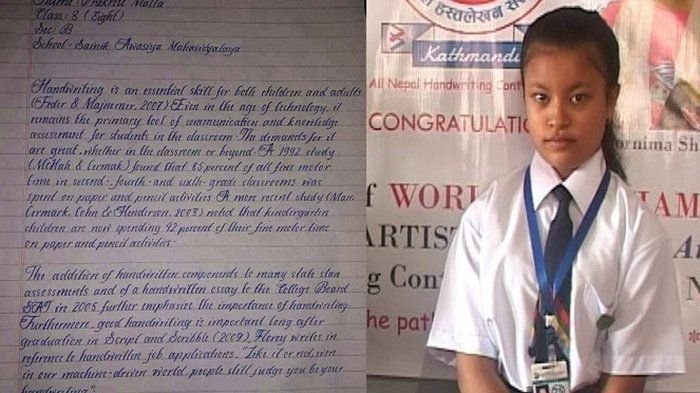 Name : Prakriti Malla
Class : 8 (Eight)
Sec : B
School : Sainik Awasiya Mahavidyalaya
Handwriting is an essential skill for both children and adults
(Feder & Majnemer, 2007) Even in the age of technology, it
remains the primary tool of communication and knowledge
assessment for students in the classroom. The demands for it
are great, whether in the classroom or beyond. A 1992 study
(McHale & Cermak) found that 85 percent of all fine motor
time in second-, fourth- and sixth- grade classrooms was
spent on paper and pencil activities. A more recent study (Marr,
Cermark, Cohn & Henderson, 2003) noted that kindergarten
children are now spending 42 percent of their fine motor time
on paper and pencil activities.
The addition of handwritten components to many state stan
assessments and of a handwritten essay to the College Board
SAT in 2005 further emphasize the importance of handwriting.
Furthermore, good handwriting is important long after
graduation in Script and Scribble (2009), Florey writes in
reference to handwritten job applications, "Like it or not, even
in our machine-driven world, people still judge you be your
handwriting".
हस्तलेखन
Kathmandu
All Nepal Handwriting Con
CONGRATULA
rnima Sh
f WOR
IAM
ARTIS
g Con
N
he pat